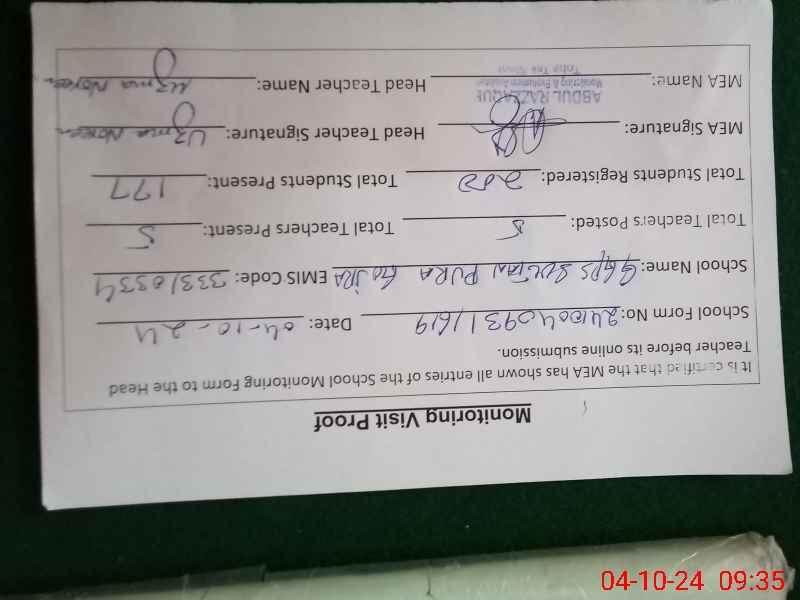 Monitoring Visit Proof
It is certified that the MEA has shown all entries of the School Monitoring Form to the Head
Teacher before its online submission.
School Form No: Date: 04-10-24
School Name: GGPS SULTAN PURA GOJRA EMIS Code: 33310334
Total Teachers Posted: 5 Total Teachers Present: 5
Total Students Registered: 200 Total Students Present: 177
MEA Signature: Head Teacher Signature: Uzma Noreen
MEA Name: ABDUL RAZZAQUE Head Teacher Name: Uzma Noreen
Monitoring & Evaluation Assistant
Toba Tek Singh
04-10-24 09:35